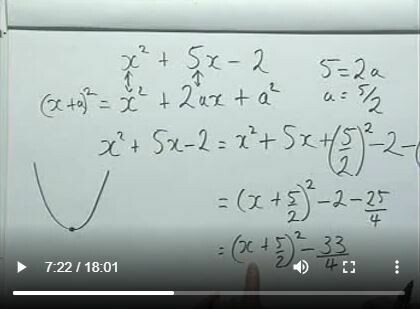 x² + 5x - 2
5 = 2a
(x+a)² = x² + 2ax + a²
a = 5/2
x² + 5x - 2 = x² + 5x + (5/2)² - 2 -
= (x + 5/2)² - 2 - 25/4
= (x + 5/2)² - 33/4
7:22 / 18:01